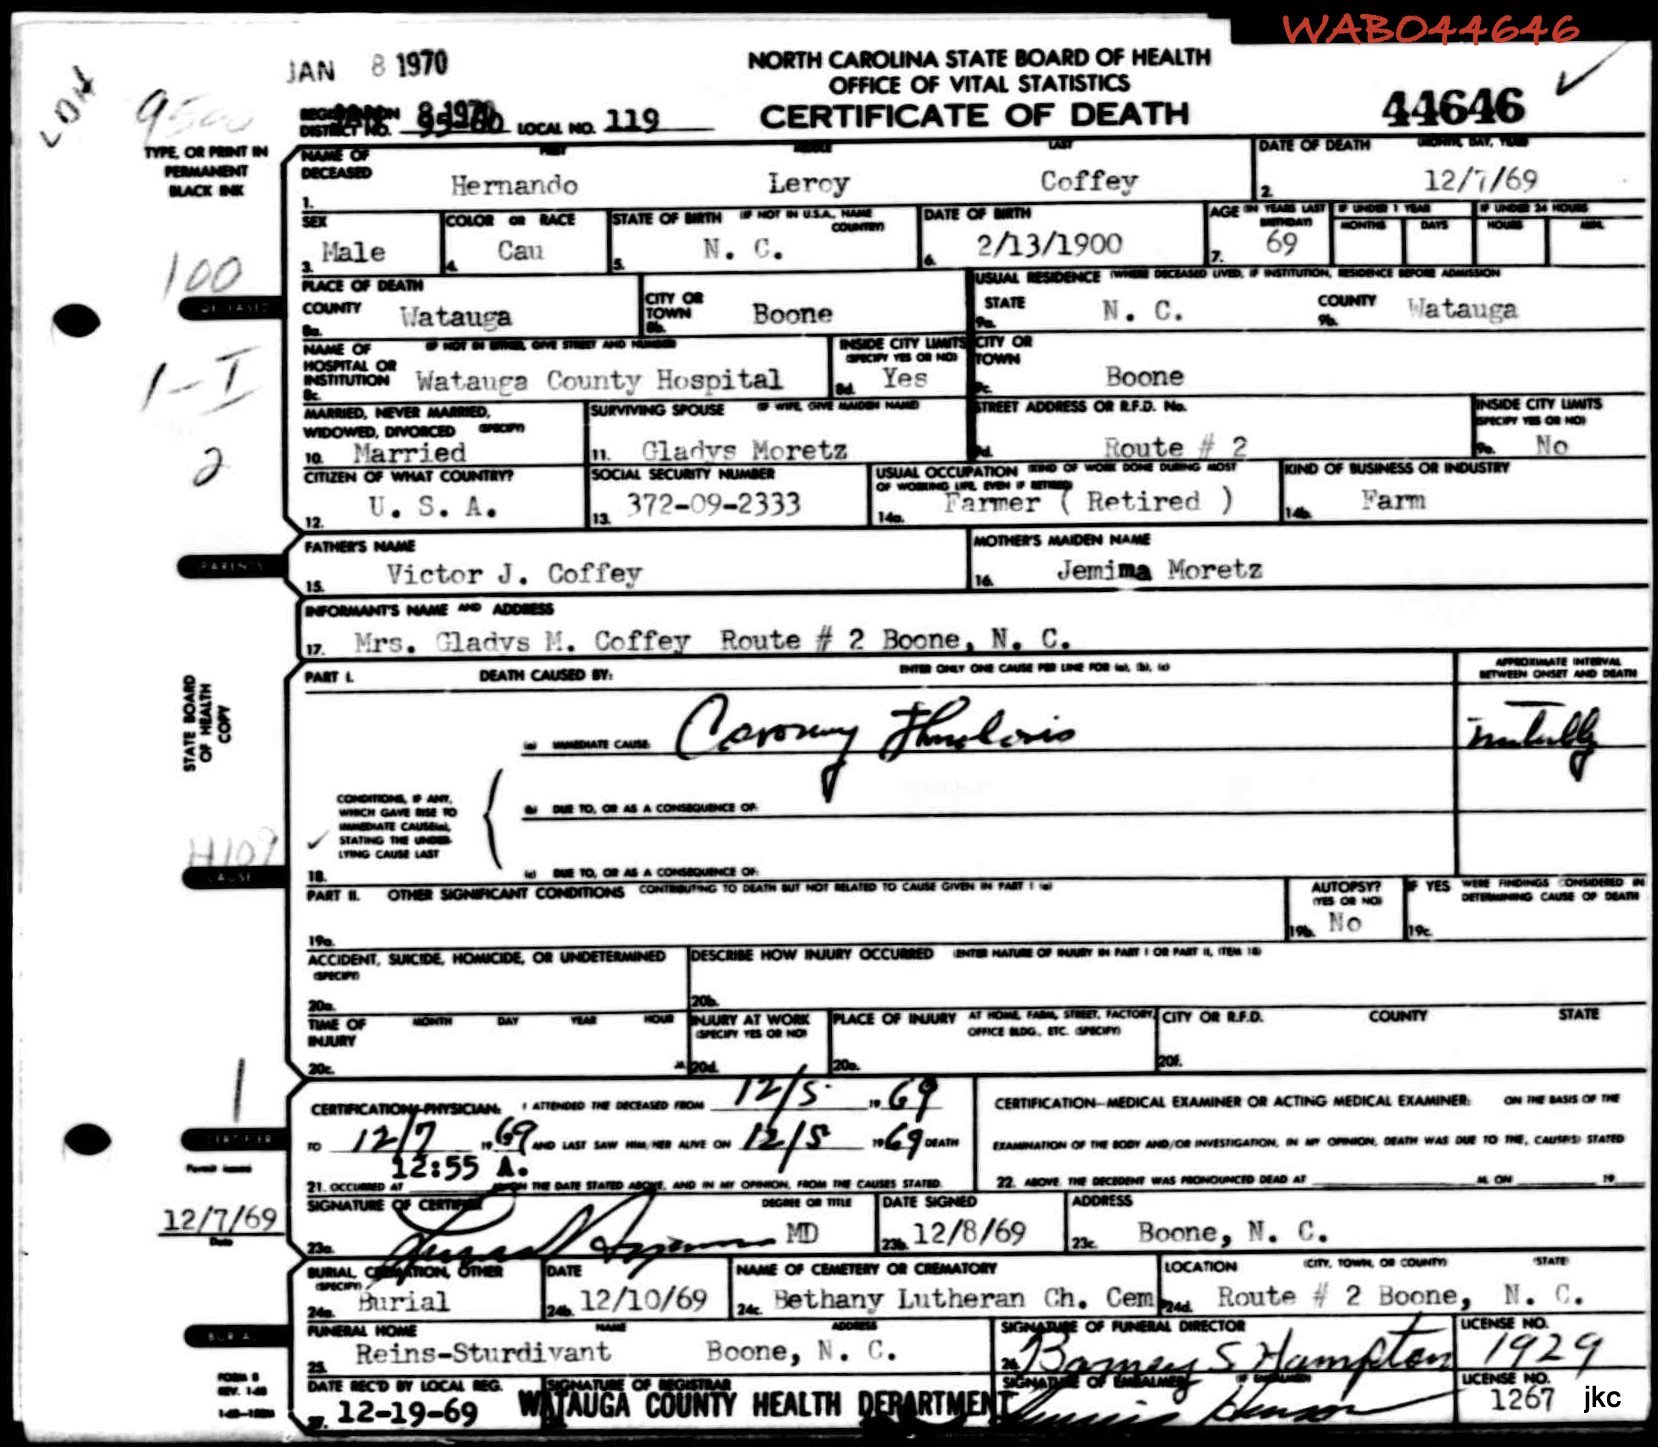 WABO44646
JAN 8 1970
NORTH CAROLINA STATE BOARD OF HEALTH
OFFICE OF VITAL STATISTICS
CERTIFICATE OF DEATH
44646
REGISTRATION DISTRICT NO. 95-60 LOCAL NO. 119
TYPE, OR PRINT IN
PERMANENT
BLACK INK
NAME OF DECEASED FIRST MIDDLE LAST DATE OF DEATH (MONTH, DAY, YEAR)
1. Hernando Leroy Coffey 2. 12/7/69
SEX COLOR OR RACE STATE OF BIRTH (IF NOT IN U.S.A., NAME COUNTRY) DATE OF BIRTH AGE (IN YEARS LAST BIRTHDAY) IF UNDER 1 YEAR MONTHS DAYS IF UNDER 24 HOURS HOURS MIN.
3. Male 4. Cau 5. N. C. 6. 2/13/1900 7. 69
100
DECEASED
PLACE OF DEATH USUAL RESIDENCE (WHERE DECEASED LIVED, IF INSTITUTION, RESIDENCE BEFORE ADMISSION
COUNTY 8a. Watauga CITY OR TOWN 8b. Boone STATE 9a. N. C. COUNTY 9b. Watauga
NAME OF HOSPITAL OR INSTITUTION (IF NOT IN EITHER, GIVE STREET AND NUMBER) INSIDE CITY LIMITS (SPECIFY YES OR NO) CITY OR TOWN
8c. Watauga County Hospital 8d. Yes 9c. Boone
1-I
MARRIED, NEVER MARRIED, WIDOWED, DIVORCED (SPECIFY) SURVIVING SPOUSE (IF WIFE, GIVE MAIDEN NAME) STREET ADDRESS OR R.F.D. No. INSIDE CITY LIMITS (SPECIFY YES OR NO)
10. Married 11. Gladys Moretz 9d. Route # 2 9e. No
2
CITIZEN OF WHAT COUNTRY? SOCIAL SECURITY NUMBER USUAL OCCUPATION (KIND OF WORK DONE DURING MOST OF WORKING LIFE, EVEN IF RETIRED) KIND OF BUSINESS OR INDUSTRY
12. U. S. A. 13. 372-09-2333 14a. Farmer ( Retired ) 14b. Farm
PARENTS
FATHER'S NAME MOTHER'S MAIDEN NAME
15. Victor J. Coffey 16. Jemima Moretz
INFORMANT'S NAME AND ADDRESS
17. Mrs. Gladys M. Coffey Route # 2 Boone, N. C.
STATE BOARD
OF HEALTH
COPY
PART I. DEATH CAUSED BY: ENTER ONLY ONE CAUSE PER LINE FOR (a), (b), (c) APPROXIMATE INTERVAL BETWEEN ONSET AND DEATH
(a) IMMEDIATE CAUSE: Coronary Thrombosis
CONDITIONS, IF ANY,
WHICH GAVE RISE TO
IMMEDIATE CAUSE(a),
STATING THE UNDER-
LYING CAUSE LAST
(b) DUE TO, OR AS A CONSEQUENCE OF:
18. (c) DUE TO, OR AS A CONSEQUENCE OF:
H109
CAUSE
PART II. OTHER SIGNIFICANT CONDITIONS CONTRIBUTING TO DEATH BUT NOT RELATED TO CAUSE GIVEN IN PART I (a) AUTOPSY? (YES OR NO) IF YES WERE FINDINGS CONSIDERED IN DETERMINING CAUSE OF DEATH
19a. 19b. No 19c.
ACCIDENT, SUICIDE, HOMICIDE, OR UNDETERMINED (SPECIFY) DESCRIBE HOW INJURY OCCURRED (ENTER NATURE OF INJURY IN PART I OR PART II, ITEM 18)
20a. 20b.
TIME OF INJURY MONTH DAY YEAR HOUR INJURY AT WORK (SPECIFY YES OR NO) PLACE OF INJURY AT HOME, FARM, STREET, FACTORY, OFFICE BLDG., ETC. (SPECIFY) CITY OR R.F.D. COUNTY STATE
20c. M. 20d. 20e. 20f.
CERTIFIER
CERTIFICATION-PHYSICIAN: I ATTENDED THE DECEASED FROM 12/5 19 69
TO 12/7 19 69 AND LAST SAW HIM/HER ALIVE ON 12/5 19 69 DEATH
21. OCCURRED AT 12:55 A. M. ON THE DATE STATED ABOVE, AND IN MY OPINION, FROM THE CAUSES STATED.
CERTIFICATION-MEDICAL EXAMINER OR ACTING MEDICAL EXAMINER: ON THE BASIS OF THE
EXAMINATION OF THE BODY AND/OR INVESTIGATION, IN MY OPINION, DEATH WAS DUE TO THE, CAUSE(S) STATED
22. ABOVE. THE DECEDENT WAS PRONOUNCED DEAD AT M. ON 19
Permit issued
12/7/69
Date
SIGNATURE OF CERTIFIER DEGREE OR TITLE DATE SIGNED ADDRESS
23a. MD 23b. 12/8/69 23c. Boone, N. C.
BURIAL, CREMATION, OTHER (SPECIFY) DATE NAME OF CEMETERY OR CREMATORY LOCATION (CITY, TOWN, OR COUNTY) (STATE)
24a. Burial 24b. 12/10/69 24c. Bethany Lutheran Ch. Cem 24d. Route # 2 Boone, N. C.
BURIAL
FUNERAL HOME NAME ADDRESS SIGNATURE OF FUNERAL DIRECTOR LICENSE NO.
25. Reins-Sturdivant Boone, N. C. 26. Barney S Hampton 1929
FORM 8
REV. 1-68
DATE REC'D BY LOCAL REG. SIGNATURE OF REGISTRAR SIGNATURE OF EMBALMER (IF EMBALMED) LICENSE NO.
27. 12-19-69 WATAUGA COUNTY HEALTH DEPARTMENT 1267 jkc